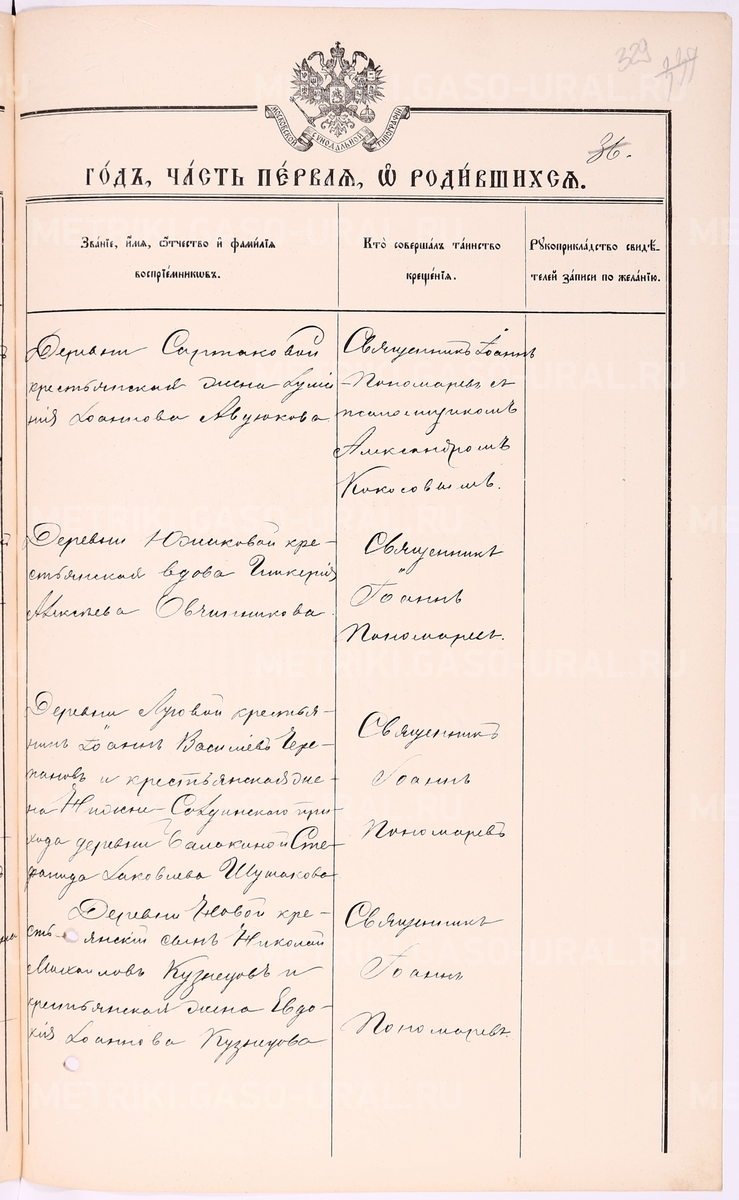 329
36.
МОСКОВСКОЙ СѴНОДАЛЬНОЙ ТИПОГРАФІИ
ГО́ДЪ, ЧА́СТЬ ПЕ́РВАЯ, Ѡ҆ РОДИ́ВШИХСЯ.
Зва́ніе, и҆́мя, ѻ҆́тчество и҆ фами́лія
воспріе́мникѡвъ.
Кто̀ соверша́лъ та́инство
креще́нія.
Рꙋкоприкла́дство свидѣ́-
телей за́писи по жела́нію.
Деревни Сартаковой
крестьянская жена
нія Іоаннова Авдюкова.
Священникъ Іоаннъ
Пономаревъ съ
псаломщикомъ
Александромъ
Кокосовымъ.
Деревни Южаковой кре-
стьянская вдова Гликерія
Алексѣева Овчинникова.
Священникъ
Іоаннъ
Пономаревъ.
Деревни Луговой крестья-
нинъ Іоаннъ Василіевъ Чере-
пановъ и крестьянская же-
на Нижне-Салдинскаго при-
хода деревни Балакиной Сте-
фанида Іаковлева Шумакова
Священникъ
Іоаннъ
Пономаревъ
Деревни Новой кре-
стьянскій сынъ Николай
Михайловъ Кузнецовъ и
крестьянская жена Евдо-
кія Іоаннова Кузнецова
Священникъ
Іоаннъ
Пономаревъ.
METRIKI.GASO-URAL.RU